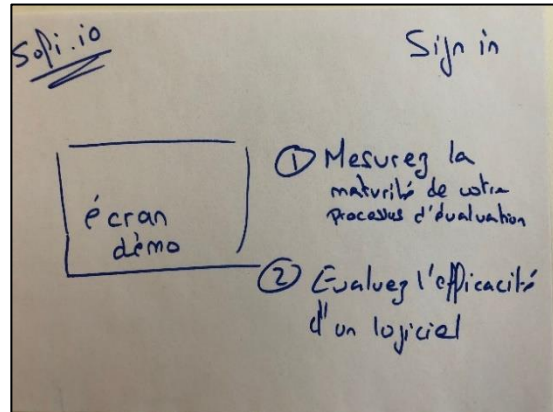 Sopi.io
Sign in
écran
démo
① Mesurez la
maturité de votre
processus d'évaluation
② Evaluez l'efficacité
d'un logiciel